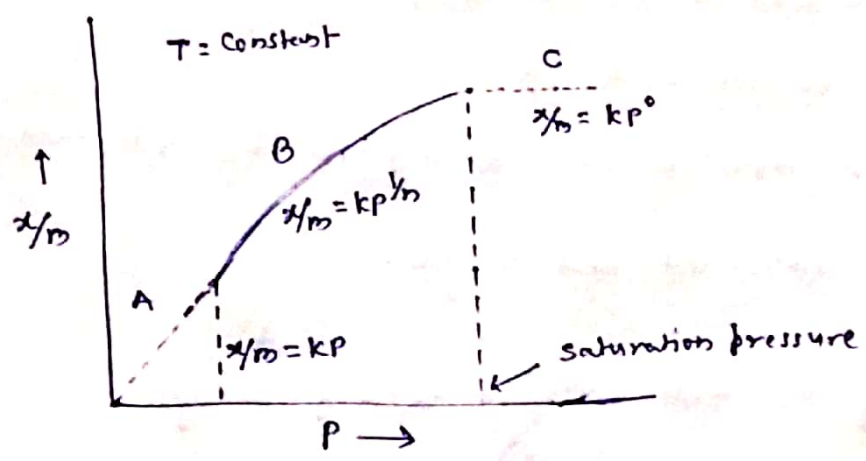 T = Constant
C
x/m = kp⁰
B
x/m = kp^1/n
↑
x/m
A
x/m = kp
saturation pressure
P →